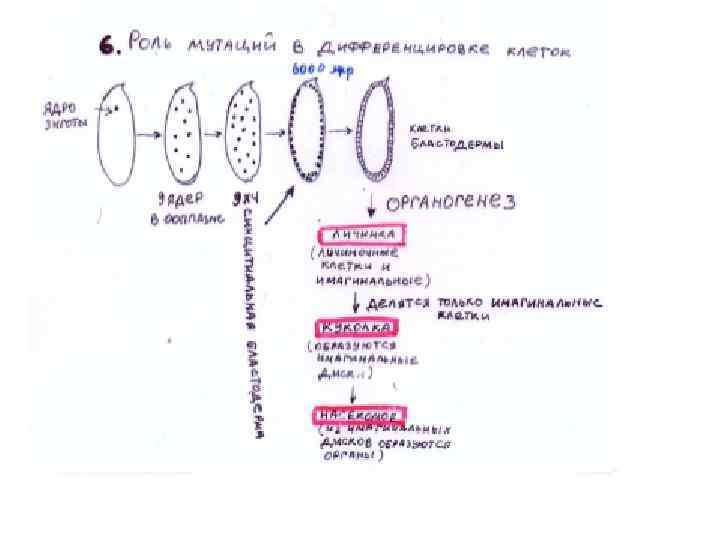 6. Роль мутаций в дифференцировке клеток
6000 яд
ядро
зиготы
клетки
бластодермы
ядер
в ооплазме
синцитиальная бластодерма
органогенез
личинка
(личиночные
клетки и
имагинальные)
делятся только имагинальные
клетки
куколка
(образуются
имагинальные
диски)
насекомое
(из имагинальных
дисков образуются
органы)